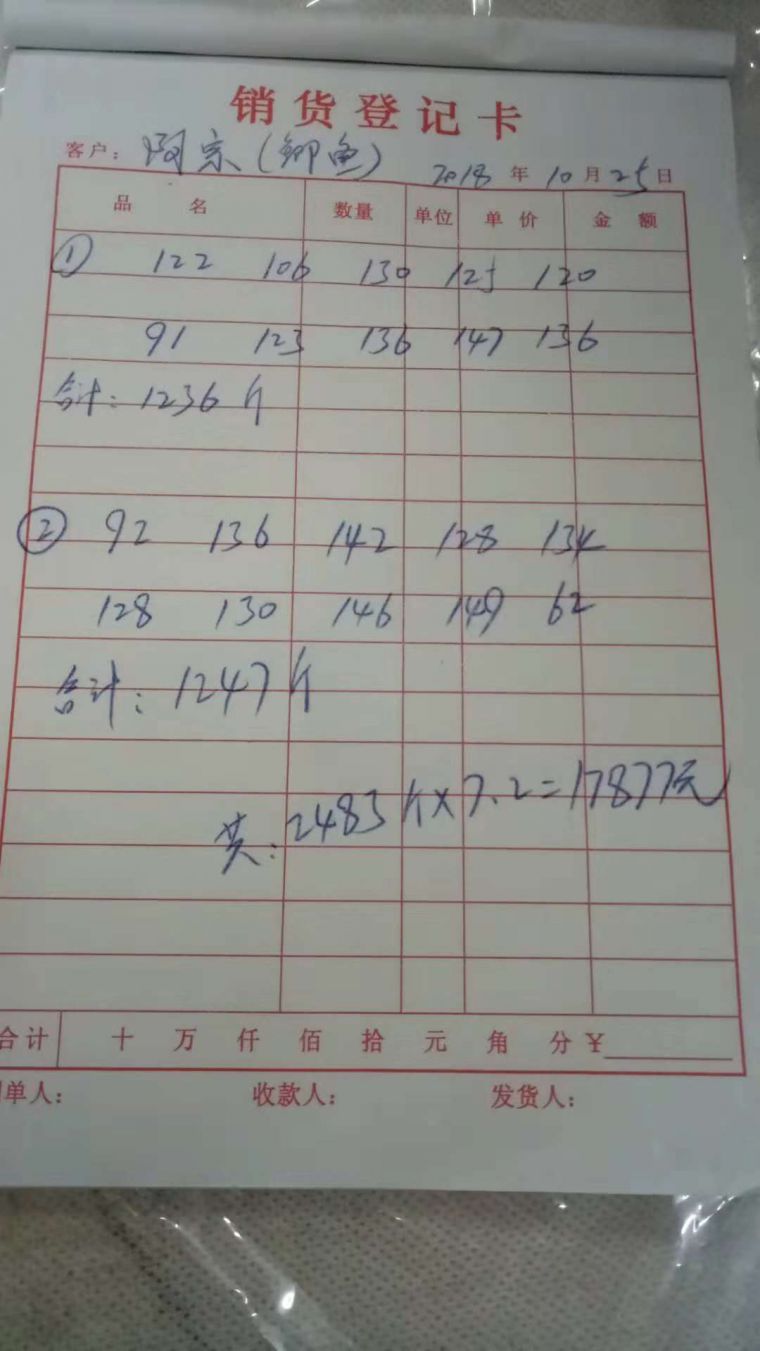 销货登记卡
客户：阿宗（鲫鱼） 2018年10月25日
品名 数量 单位 单价 金额
① 122 106 130 125 120
91 123 136 147 136
合计：1236斤
② 92 136 142 128 134
128 130 146 149 62
合计：1247斤
共：2483斤×7.2=17877元
合计 十万仟佰拾元角分￥
单人： 收款人： 发货人：